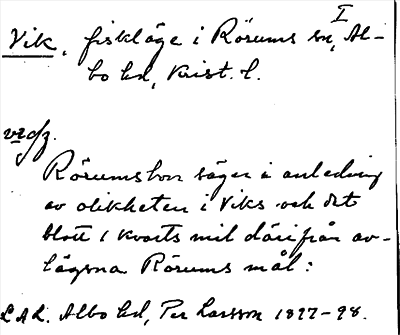 I
Vik, fiskläge i Rörums sn, Al-
bo hd, Krist. l.
Rörumsbon säger i anledning
av olikheten i Viks och det
blott 1 kvarts mil därifrån av-
lägsna Rörums mål:
L.A.L. Albo hd, Per Larsson 1897-98.